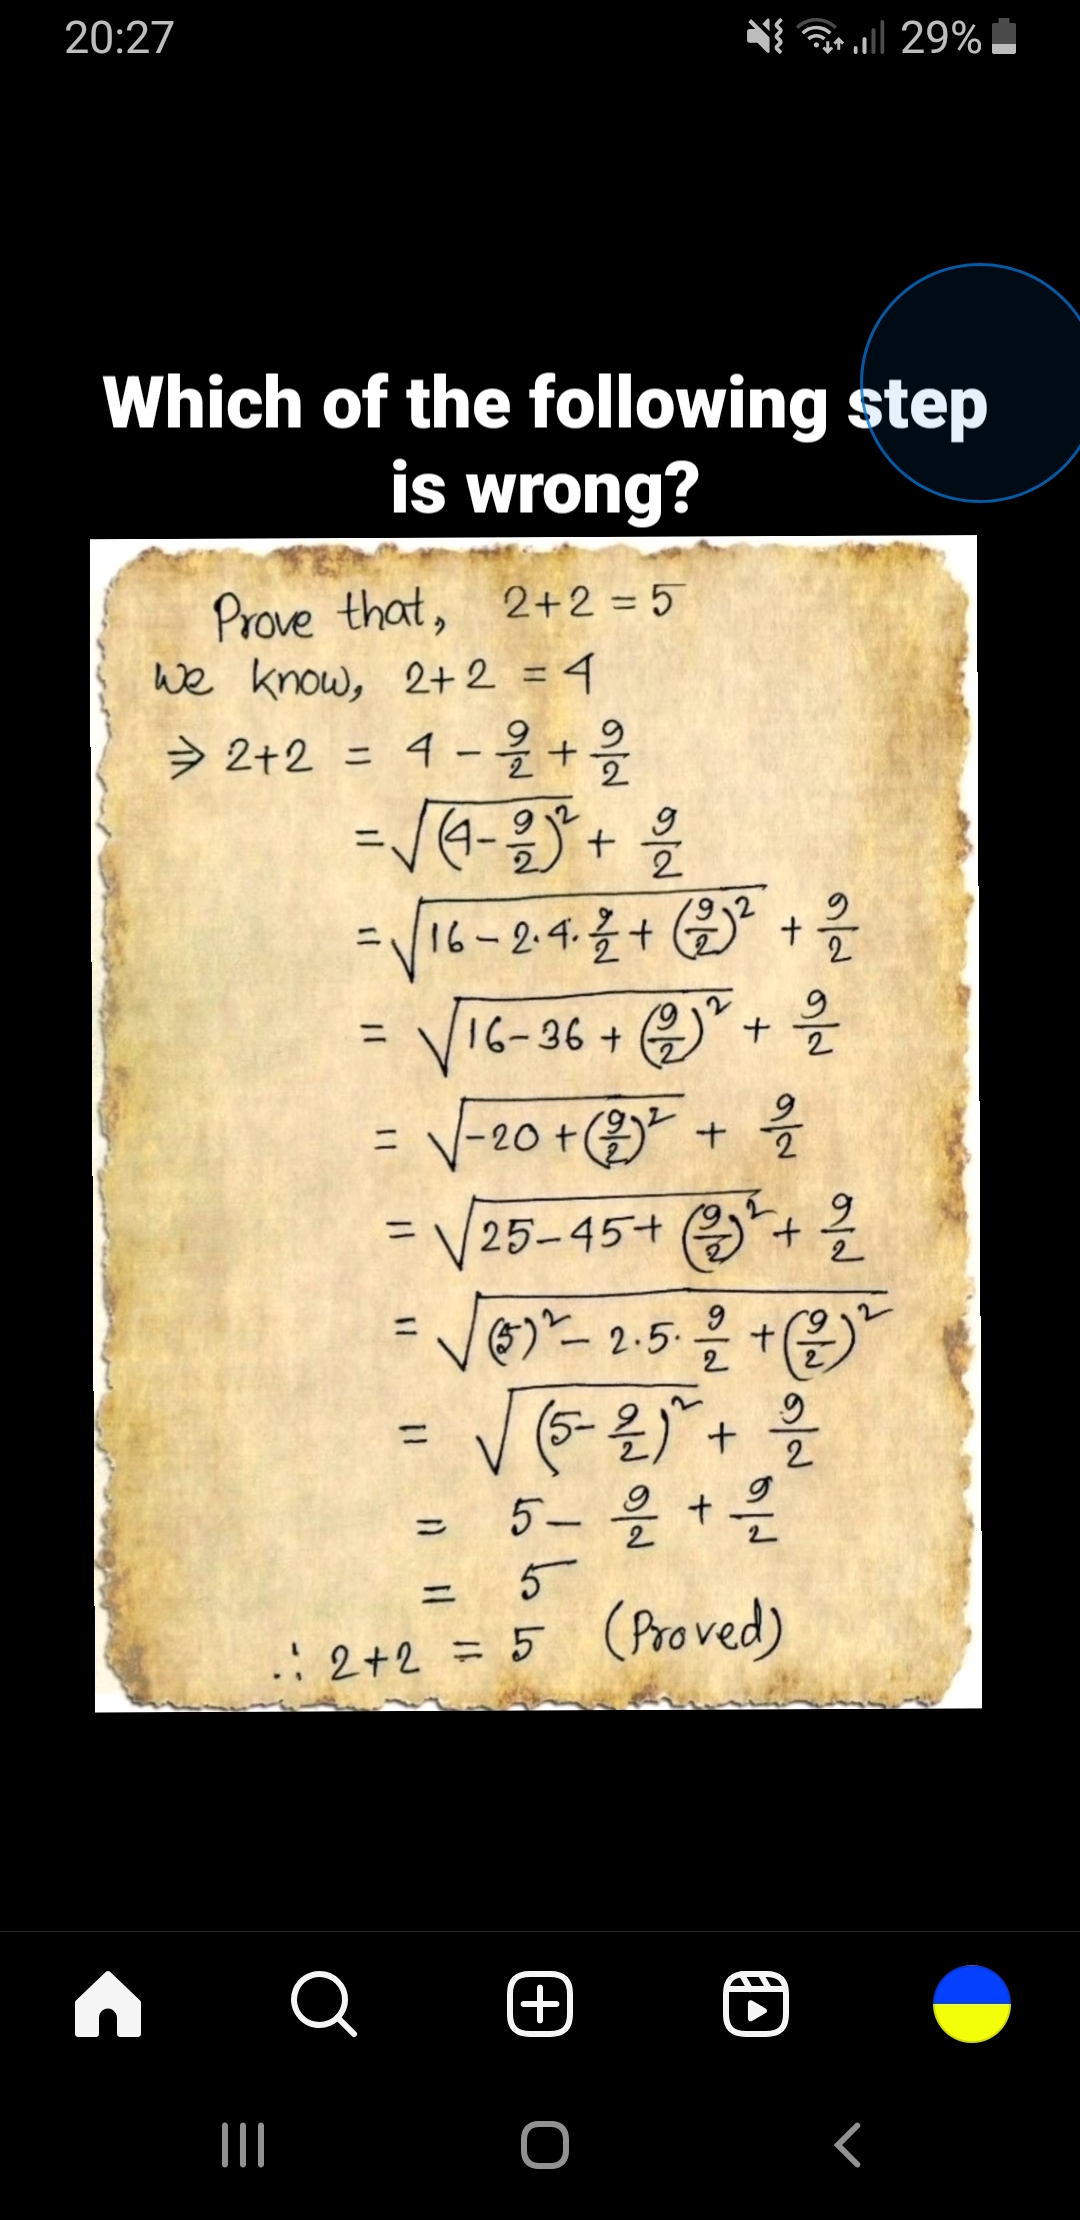 20:27 29%
Which of the following step
is wrong?
Prove that, 2+2 = 5
We know, 2+2 = 4
⇒ 2+2 = 4 - 9/2 + 9/2
= √(4-9/2)² + 9/2
= √16 - 2·4·9/2 + (9/2)² + 9/2
= √16-36 + (9/2)² + 9/2
= √-20 + (9/2)² + 9/2
= √25-45+ (9/2)² + 9/2
= √(5)² - 2·5·9/2 + (9/2)²
= √(5-9/2)² + 9/2
= 5 - 9/2 + 9/2
= 5
∴ 2+2 = 5 (Proved)